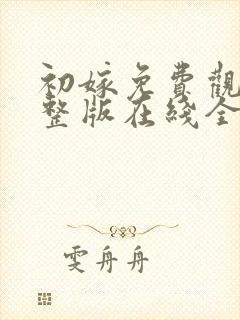 初嫁免費觀
整版在綫全
雯舟舟